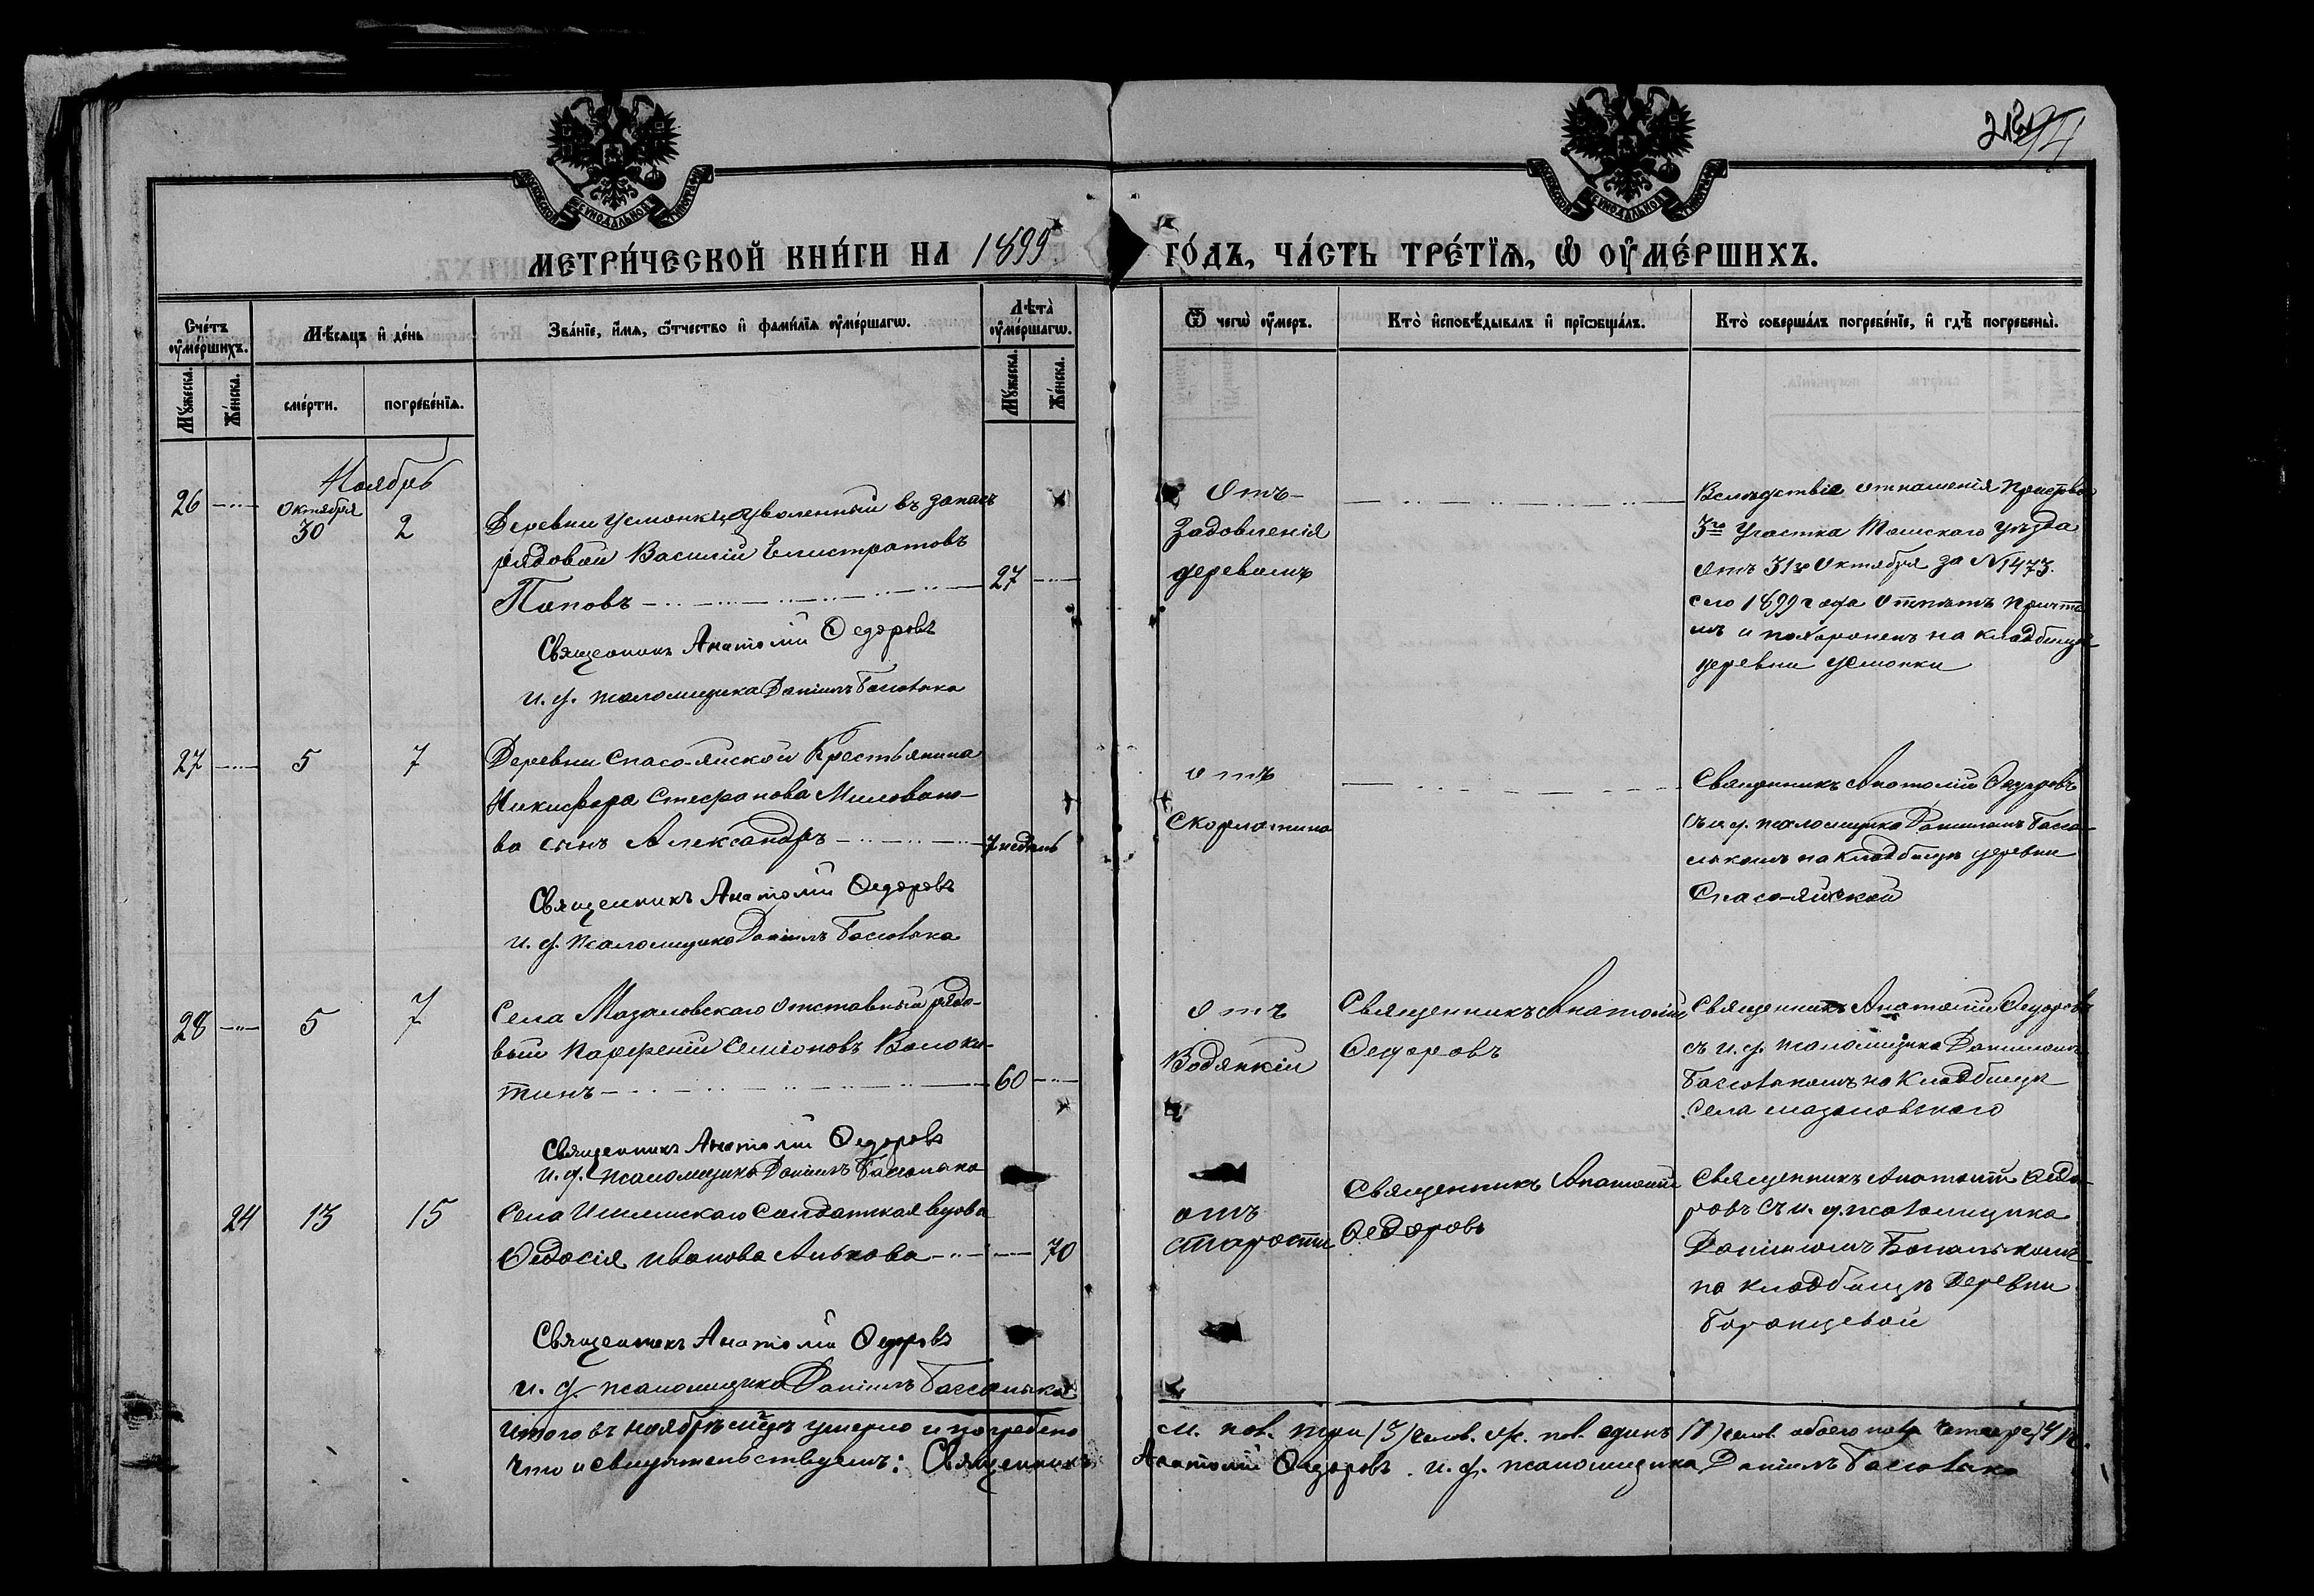 МЕТРИ́ЧЕСКОЙ КНИ́ГИ НА 1899
ГО́ДЪ, ЧА́СТЬ ТРЕ́ТЇѦ, Ѡ ОУМЕ́РШИХЪ.
Сче́тъ оуме́ршихъ.
Мѣ́сяцъ и де́нь
Зва́нїе, и́мѧ, ѻ́тчество и фами́лїѧ оуме́ршагѡ.
Лѣта̀ оуме́ршагѡ.
Ѿ чегѡ̀ оу́меръ.
Кто̀ исповѣ́дывалъ и прїѡбща́лъ.
Кто̀ соверша́лъ погребе́нїе, и гдѣ̀ погребены̀.
Мꙋ́жеска.
Же́нска.
сме́рти.
погребе́нїѧ.
Мꙋ́жеска.
Же́нска.
Ноябрь
26
Октября
30
2
Деревни Усманки, уволенный въ запасъ
рядовой Василій Елистратовъ
Поповъ
27
Священникъ Анатолій Ѳедоровъ
и. д. псаломщика Даніилъ
Отъ
задовленія
деревомъ
Вслѣдствіе отношенія Пристава
3го Участка Томскаго уѣзда
отъ 31го Октября за №1473.
сего 1899 года Отпѣтъ Причто
мъ и похороненъ на кладбищѣ
деревни Усманки
27
5
7
Деревни Спасо-Яйской Крестьянина
Никифора Стефанова Миловано-
ва сынъ Александръ
7 недѣль
Священникъ Анатолій Ѳедоровъ
и. д. псаломщика Даніилъ
отъ
Скорлатина
Священникъ Анатолій Ѳедоровъ
съ и д. псаломщика Даніиломъ
на кладбищѣ деревни
Спасо-Яйской
28
5
7
Села Мазаловскаго отставный рядо-
вый Парфеній Симіоновъ Волоки-
тинъ
60
Священникъ Анатолій Ѳедоровъ
и. д. псаломщика Даніилъ
отъ
Водянкій
Священникъ Анатолій
Ѳедоровъ
Священникъ Анатолій Ѳедоровъ
съ и. д. псаломщика Даніиломъ
на кладбищѣ
села Мазаловскаго
24
13
15
Села Ишимскаго Солдатская вдова
Ѳедосія Иванова
70
Священникъ Анатолій Ѳедоровъ
и. д. псаломщика Даніилъ
отъ
старости
Священникъ Анатолій
Ѳедоровъ
Священникъ Анатолій Ѳедо-
ровъ съ и. д. псаломщика
Даніиломъ
на кладбищѣ деревни
Итого въ ноябрѣ м̃цѣ умерло и погребено
м. пол. три (3) челов. ж. пол. одинъ (1) челов. обоего пола четыре (4) ч.
что и свидѣтельствуемъ: Священникъ
Анатолій Ѳедоровъ. и. д. псаломщика Даніилъ